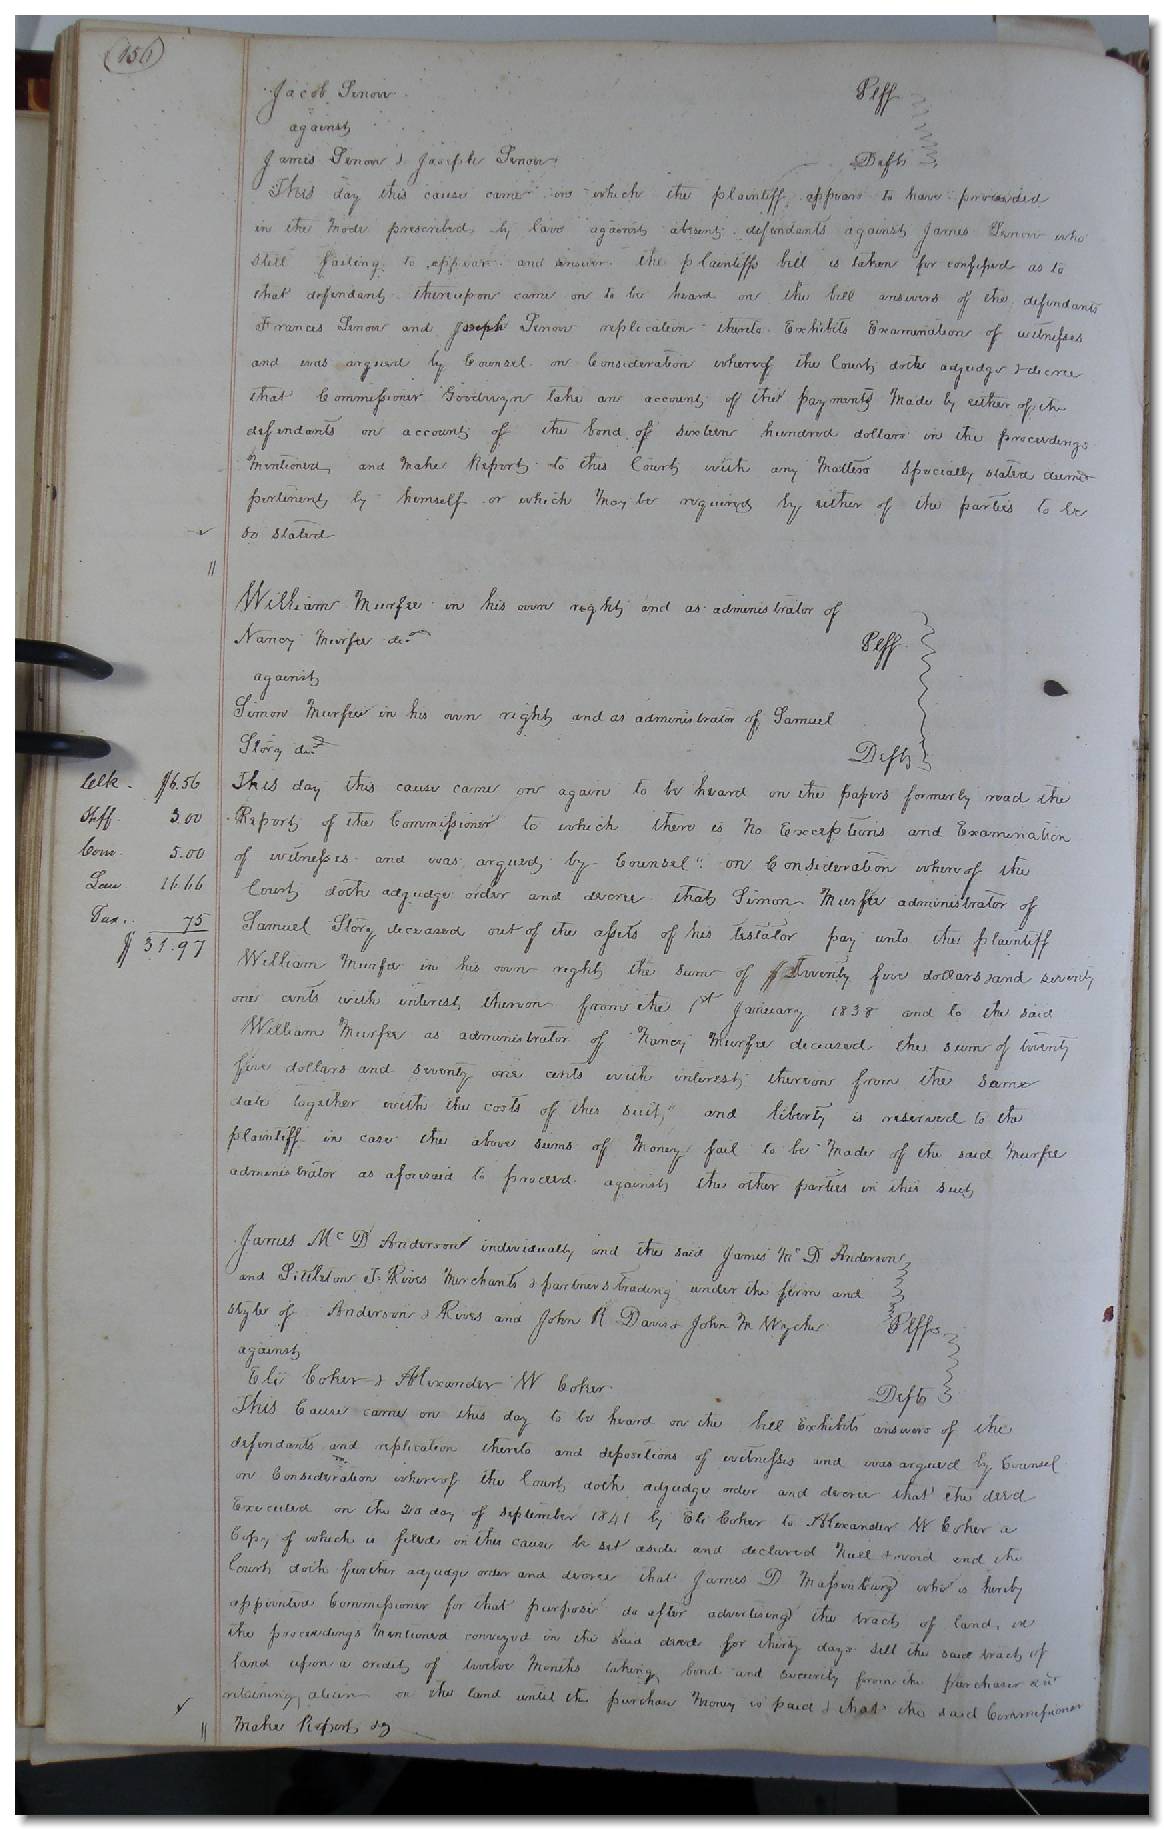 156
Jacob Senow Plff
against
James Senow & Joseph Senow Defts
This day this cause came on which the plaintiff appears to have proceeded
in the mode prescribed by law against absent defendants against James Senow who
still failing to appear and answer the plaintiffs bill is taken for confessed as to
that defendant thereupon came on to be heard on the bill answers of the defendants
Frances Senow and Joseph Senow replication thereto Exhibits Examination of witnesses
and was argued by Counsel on Consideration whereof the Court doth adjudge & decree
that Commissioner Goodwyn take an account of the payments Made by either of the
defendants on account of the bond of sixteen hundred dollars in the proceedings
Mentioned and Make Report to this Court with any Matters Specially stated deemed
pertinent by himself or which May be required by either of the parties to be
so stated
William Murfee in his own right and as administrator of
Nancy Murfee decd Plff
against
Simon Murfee in his own right and as administrator of Samuel
Story decd Defts
Clk $6.56 This day this cause came on again to be heard on the papers formerly read the
Shff 3.00 Report of the Commissioner to which there is No Exceptions and Examination
Com 5.00 of witnesses and was argued by Counsel" on Consideration whereof the
Law 16.66 Court doth adjudge order and decree that Simon Murfee administrator of
Tax 75 Samuel Story deceased out of the assets of his testator pay unto the plaintiff
$31.97 William Murfee in his own right the sum of Twenty five dollars and seventy
one cents with interest thereon from the 1st January 1838 and to the said
William Murfee as administrator of Nancy Murfee deceased the sum of twenty
five dollars and seventy one cents with interest thereon from the same
date together with the costs of this suit," and liberty is reserved to the
plaintiff in case the above sums of Money fail to be Made of the said Murfee
administrator as aforesaid to proceed against the other parties in this suit
James Mc D Anderson individually and the said James Mc D Anderson
and Littleton T Rives Merchants & partners trading under the firm and
style of Anderson & Rives and John R Davis & John M Wyche Plffs
against
Eli Coker & Alexander W Coker Defts
This Cause came on this day to be heard on the bill Exhibits answers of the
defendants and replication thereto and depositions of witnesses and was argued by Counsel
on Consideration whereof the Court doth adjudge order and decree that the deed
Executed on the 20 day of September 1841 by Eli Coker to Alexander W Coker a
Copy of which is filed in this cause be set aside and declared Null & void and the
Court doth further adjudge order and decree that James D Massenburg who is hereby
appointed Commissioner for that purpose do after advertising the tract of land in
the proceedings Mentioned conveyed in the said deed for thirty days sell the said tract of
land upon a credit of twelve Months taking bond and security from the purchaser &
retaining a lien on the land until the purchase Money is paid & that the said Commissioner
Make Report &c